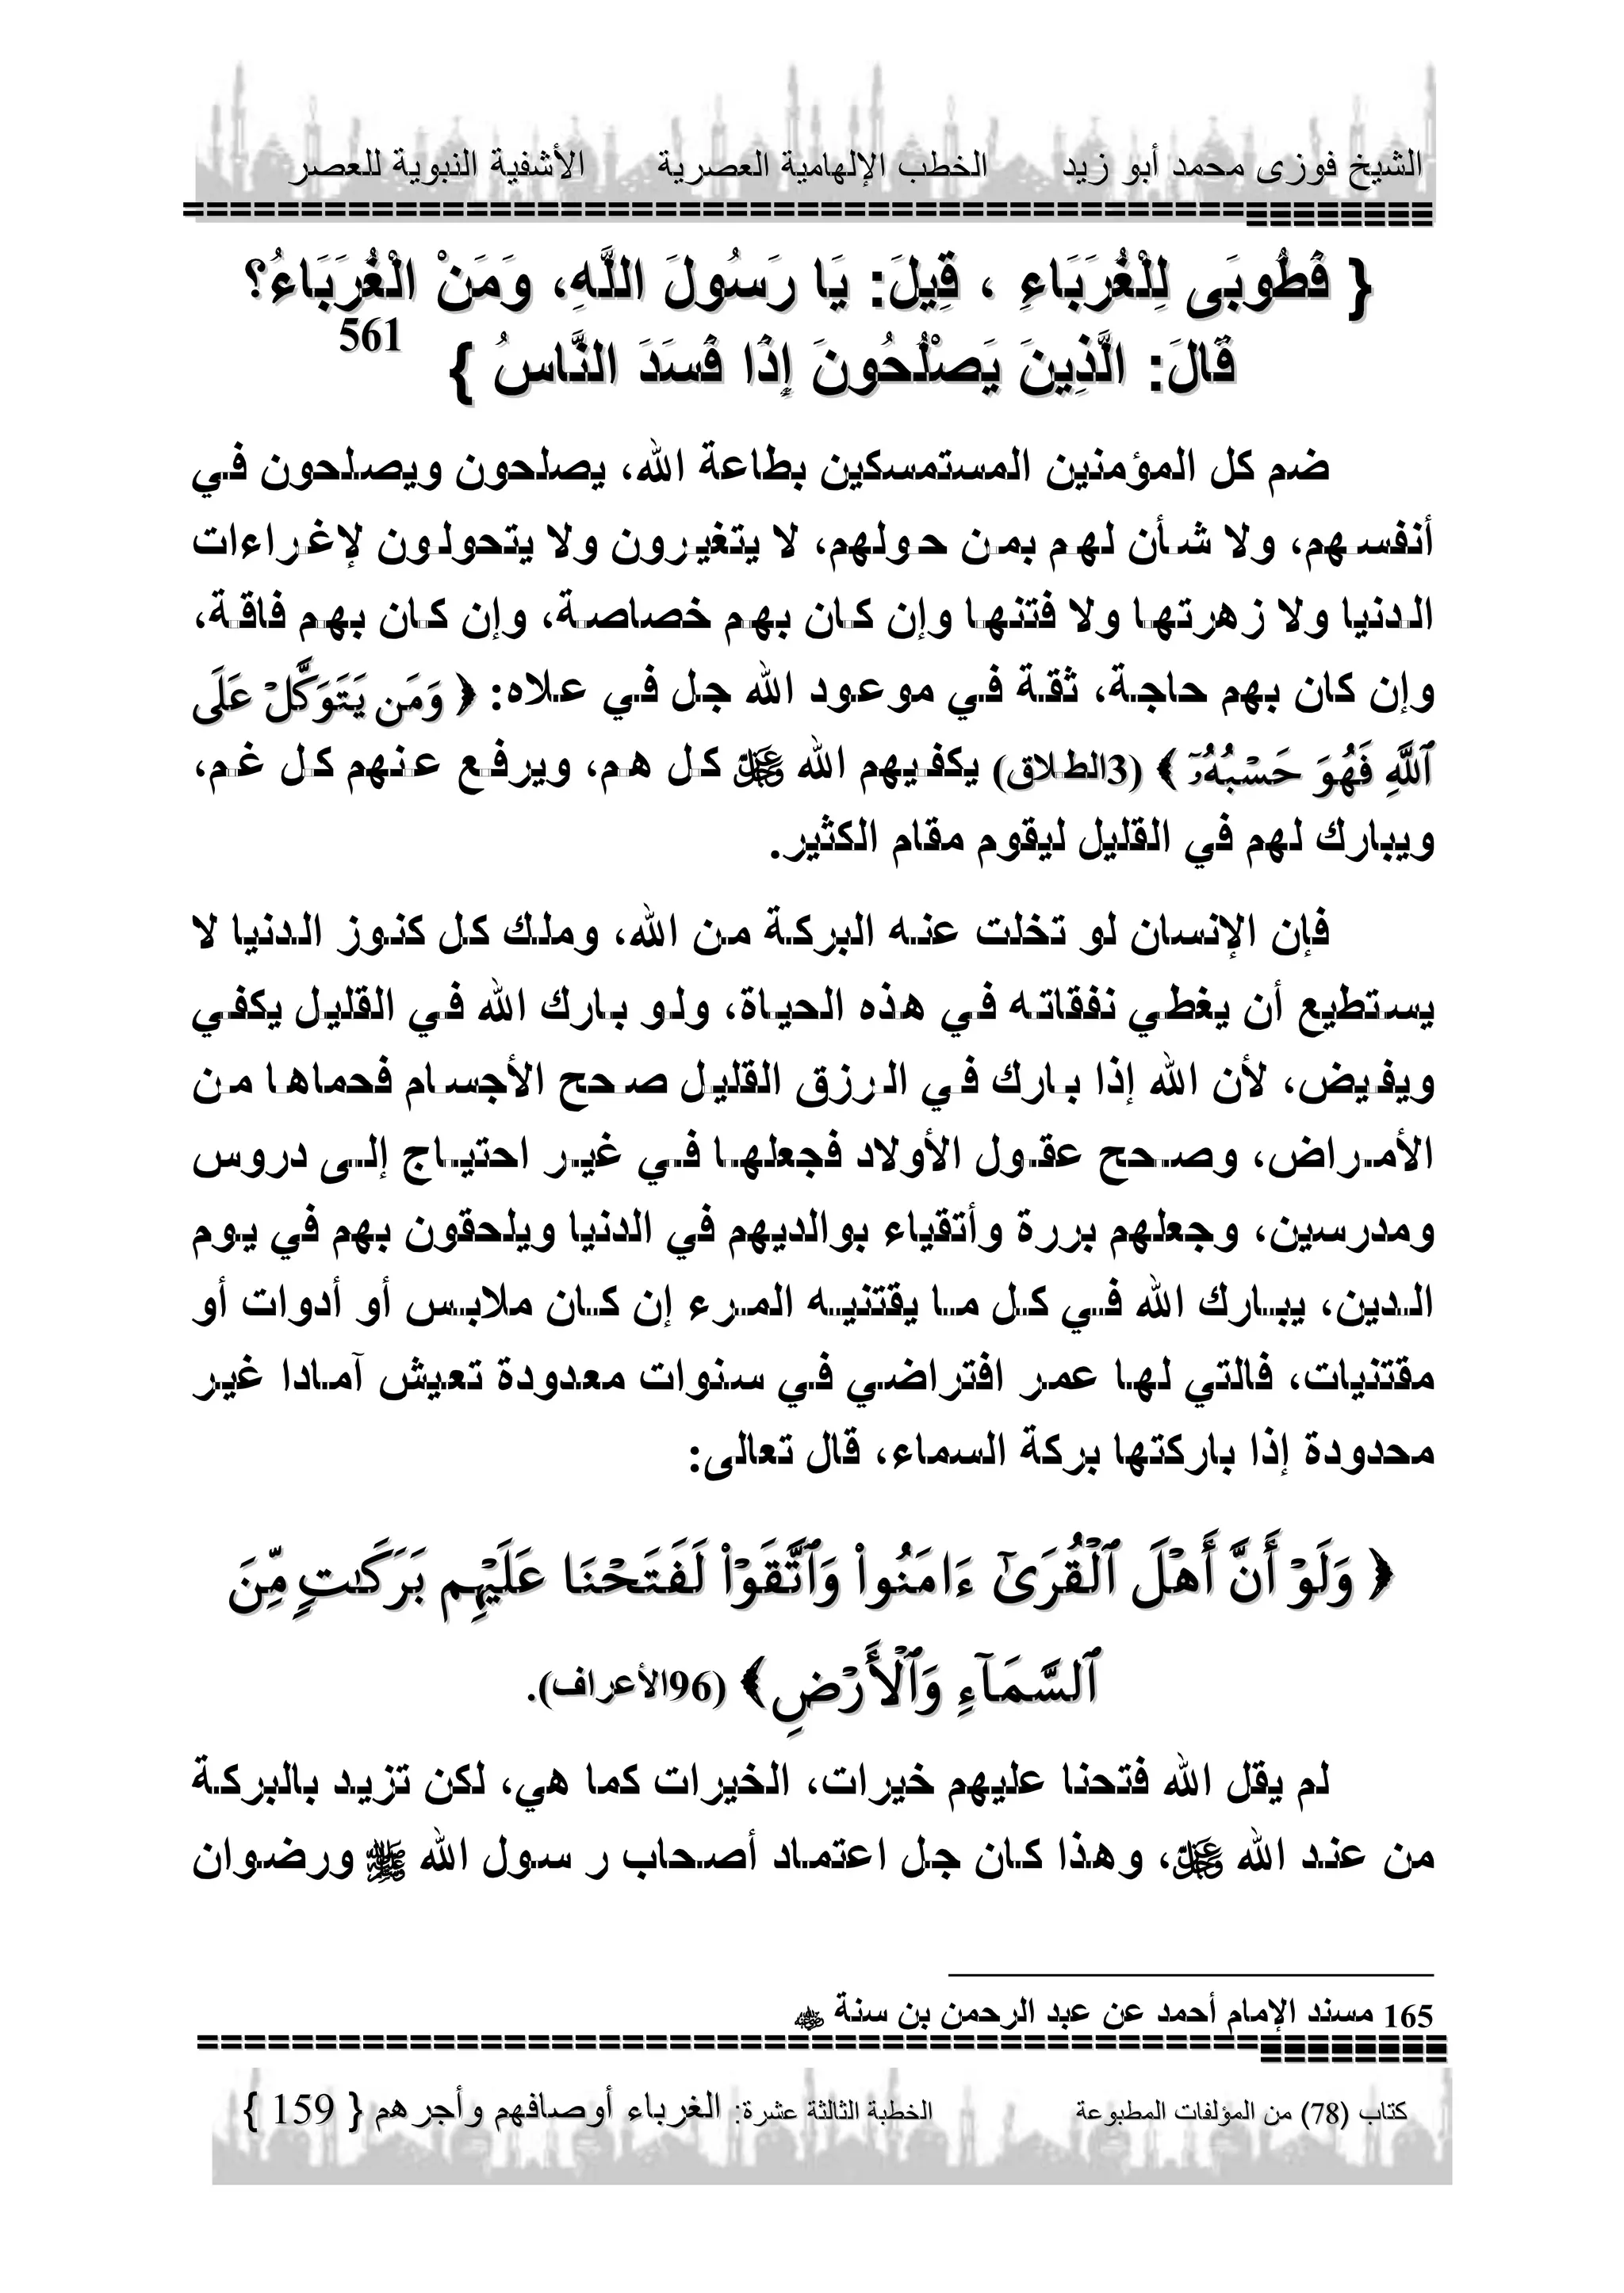 الشيخ فوزى محمد أبو زيد الخطب الإلهامية العصرية الأشفية النبوية للعصر
{ فَطُوبَى لِلْغُرَبَاءِ ، قِيلَ: يَا رَسُولَ اللَّهِ، وَمَنْ الْغُرَبَاءُ؟
قَالَ: الَّذِينَ يَصْلُحُونَ إِذَا فَسَدَ النَّاسُ } 561
ضم كل المؤمنين المستمسكين بطاعة الله، يصلحون ويصلحون في
أنفسهم، ولا شأن لهم بمن حولهم، لا يتغيرون ولا يتحولون لإغراءات
الدنيا ولا زهرتها ولا فتنها وإن كان بهم خصاصة، وإن كان بهم فاقة،
وإن كان بهم حاجة، ثقة في موعود الله جل في علاه: ﴿ وَمَن يَتَوَكَّلْ عَلَى
ٱللَّهِ فَهُوَ حَسْبُهُۥٓ ﴾ (3الطلاق) يكفيهم الله عز وجل كل هم، ويرفع عنهم كل غم،
ويبارك لهم في القليل ليقوم مقام الكثير.
فإن الإنسان لو تخلت عنه البركة من الله، وملك كل كنوز الدنيا لا
يستطيع أن يغطي نفقاته في هذه الحياة، ولو بارك الله في القليل يكفي
ويفيض، لأن الله إذا بارك في الرزق القليل صحح الأجسام فحماها من
الأمراض، وصحح عقول الأولاد فجعلها في غير احتياج إلى دروس
ومدرسين، وجعلهم بررة وأتقياء بوالديهم في الدنيا ويلحقون بهم في يوم
الدين، يبارك الله في كل ما يقتنيه المرء إن كان ملابس أو أدوات أو
مقتنيات، فالتي لها عمر افتراضي في سنوات معدودة تعيش آمادا غير
محدودة إذا باركتها بركة السماء، قال تعالى:
﴿ وَلَوْ أَنَّ أَهْلَ ٱلْقُرَىٰٓ ءَامَنُوا۟ وَٱتَّقَوْا۟ لَفَتَحْنَا عَلَيْهِم بَرَكَٰتٍ مِّنَ
ٱلسَّمَآءِ وَٱلْأَرْضِ ﴾ (96الأعراف).
لم يقل الله فتحنا عليهم خيرات، الخيرات كما هي، لكن تزيد بالبركة
من عند الله عز وجل، وهذا كان جل اعتماد أصحاب ر سول الله ﷺ ورضوان
165 مسند الإمام أحمد عن عبد الرحمن بن سنة
كتاب (78) من المؤلفات المطبوعة الخطبة الثالثة عشرة: الغرباء أوصافهم وأجرهم { 159 }